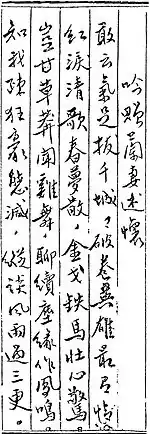 吟贈蘭妻述懷
敢云氣足拔千城,破卷無雄最
紅淚清歌春夢散,金戈鉄馬壯心驚。
豈甘草莽聞雞舞,聊續塵緣作鳳鳴。
知我疎狂豪態減,縱談風雨過三更。